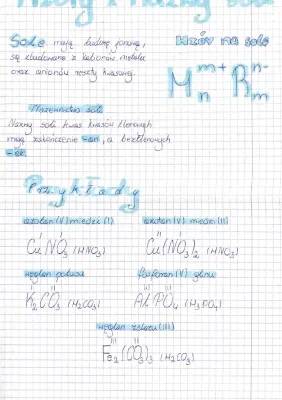 Wzory i nazwy soli
Sole mają budowę jonową,
są zbudowane z kationów metalu
oraz anionów reszty kwasowej.
Wzór na sole
M n m+ R m n-
Nazewnictwo soli
Nazwy soli kwasów tlenowych
mają zakończenie -an, a beztlenowych
-ek.
Przykłady
azotan (V) miedzi (I)
azotan (V) miedzi (II)
I I
CuNO₃ (HNO₃)
II I
Cu(NO₃)₂ (HNO₃)
węglan potasu
fosforan (V) glinu
I II
K₂CO₃ (H₂CO₃)
III III
AlPO₄ (H₃PO₄)
węglan żelaza (III)
III II
Fe₂(CO₃)₃ (H₂CO₃)